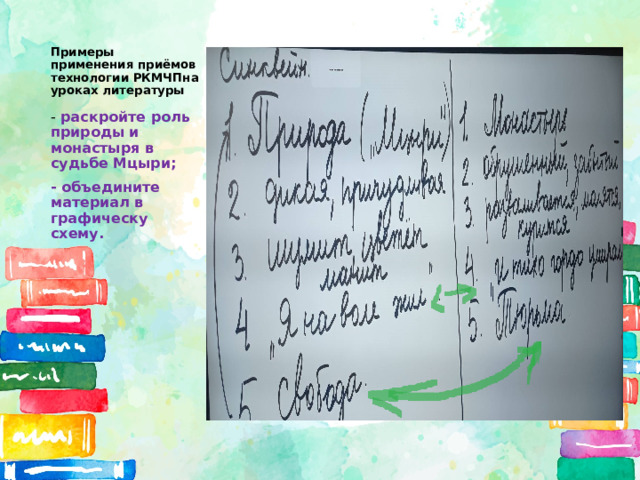 Примеры
применения приёмов
технологии РКМЧПна
уроках литературы
- раскройте роль
природы и
монастыря в
судьбе Мцыри;
- объедините
материал в
графическу
схему.
Синквейн.
1. Природа („Мцыри")
2. дикая, причудливая
3. шумит, цветёт
манит
4 „Я на воле жил"
5 Свобода.
1. Монастырь
2. обрушенный, забытый
3. разваливается, молятся,
курится
4. „и тихо гордо умирал
5. Тюрьма